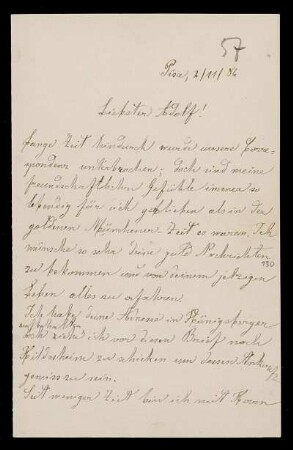 57
Pisa, 2/11/86
Liebster Adolf!
Lange Zeit hindurch wurde unsere Corre-
spondenz unterbrochen; doch sind meine
freundschaftlichen Gefühle immer so
lebendig für dich geblieben als in der
goldenen Münchener Zeit es waren. Ich
wünsche so sehr deine Nachrichten
zu bekommen und von deinem jetzigen
Leben alles zu erfahren.
Ich habe deine Adresse in
ziehe ich vor diesen Brief nach
Hildesheim zu schicken um dessen
gewiss zu sein.
Seit weniger Zeit bin ich mit Herrn